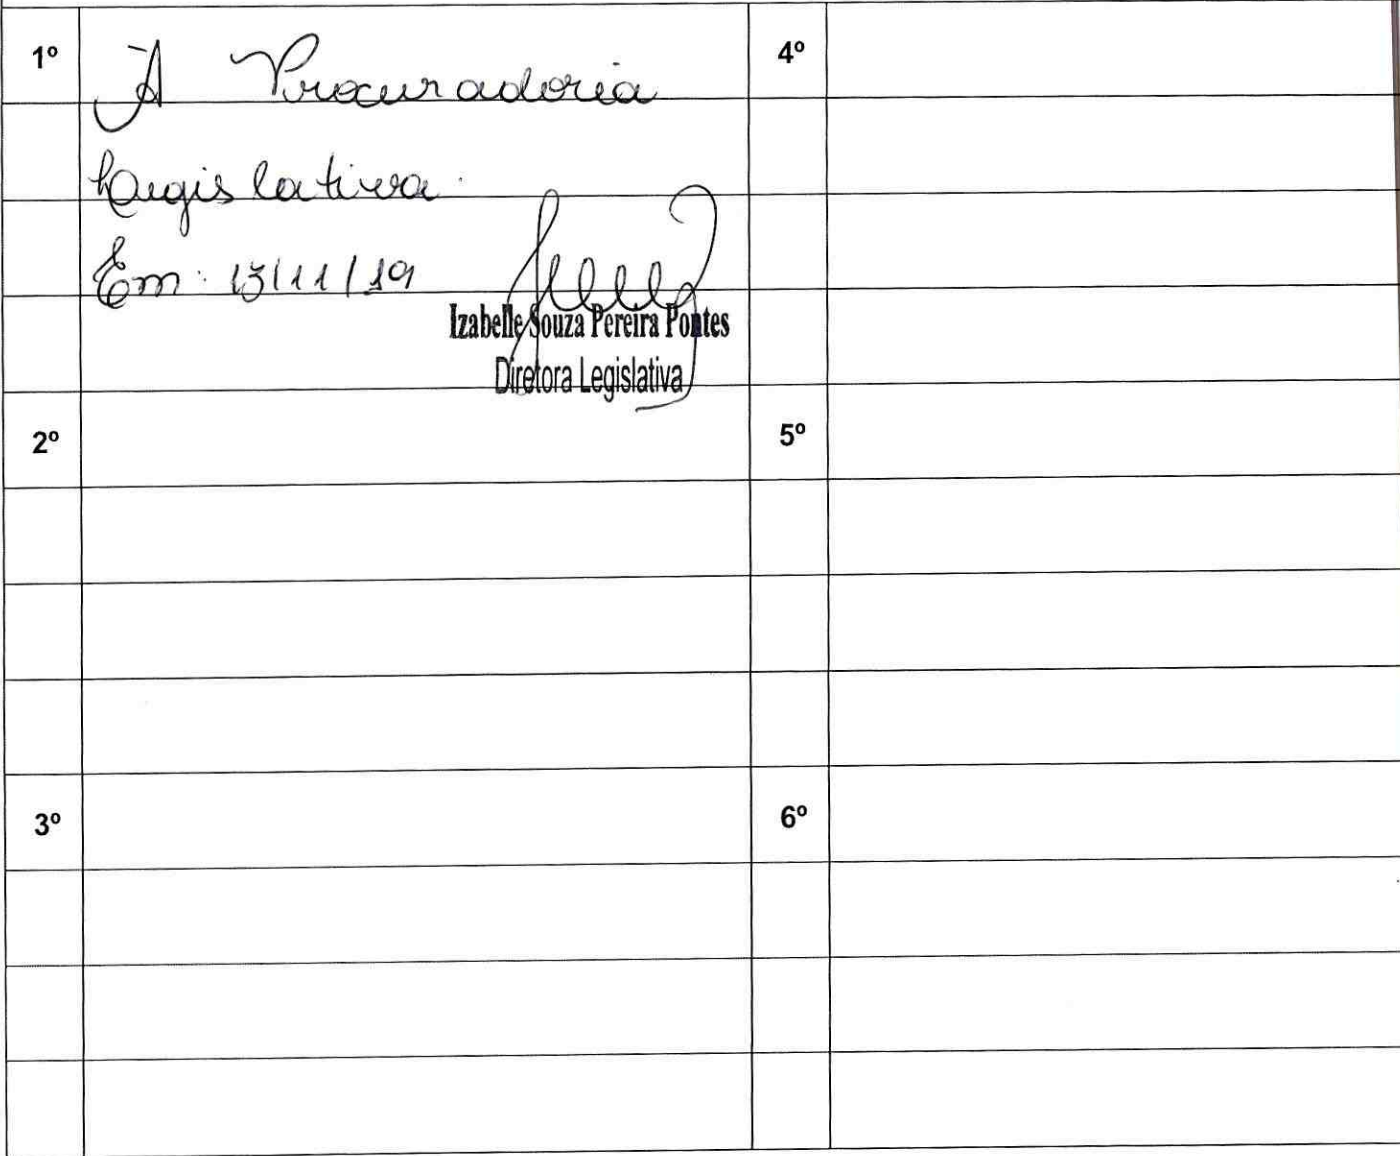 1º À Procuradoria
Legislativa.
Em: 13/11/19
Izabelle Souza Pereira Pontes
Diretora Legislativa
2º
3º
4º
5º
6º